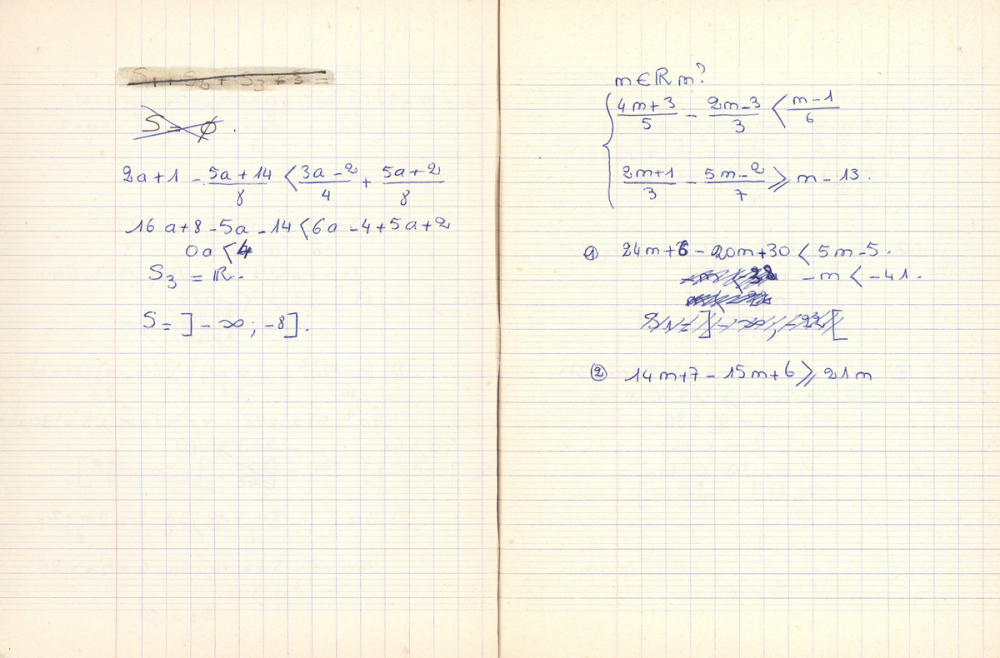 S = ∅.
2a+1 - (5a+14)/8 < (3a-2)/4 + (5a+2)/8
16a+8-5a-14<6a-4+5a+2
0a<4
S₃ = ℝ.
S = ]-∞; -8].
m∈ℝ m?
{ (4m+3)/5 - (2m-3)/3 < (m-1)/6
(2m+1)/3 - (5m-2)/7 ⩾ m-13.
① 24m+6-20m+30<5m-5.
-m<-41.
② 14m+7-15m+6⩾21m